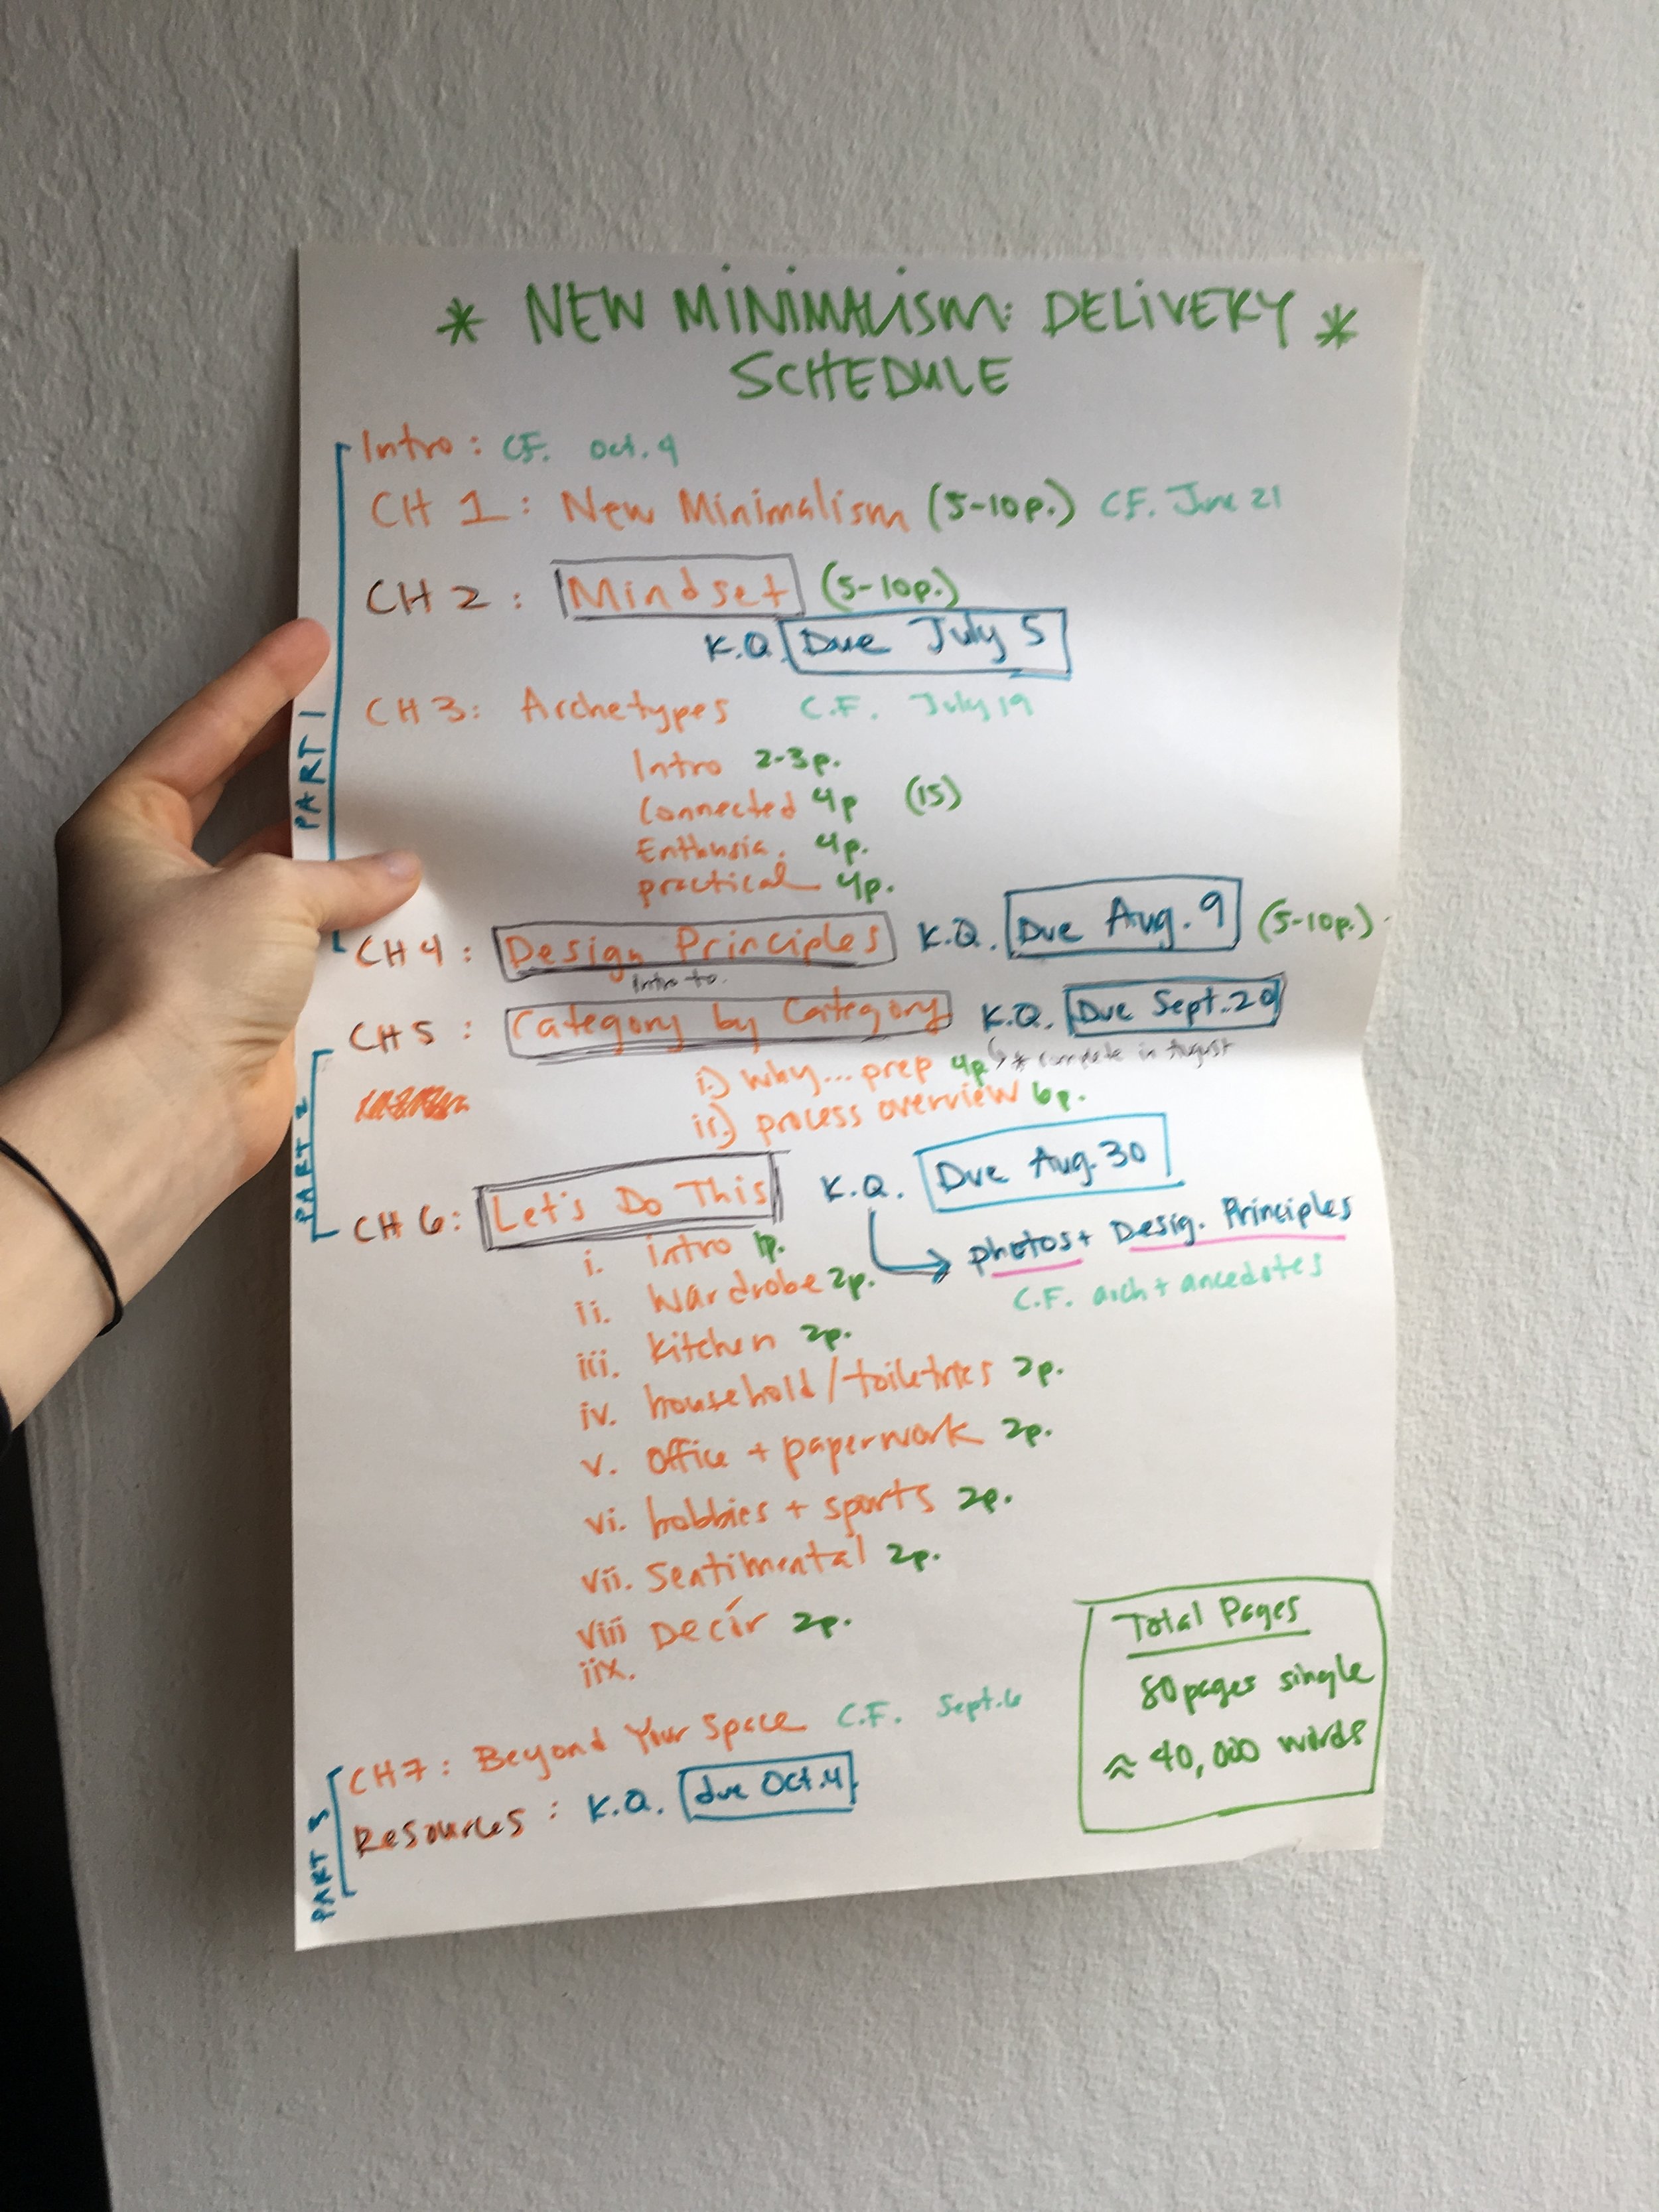 * NEW MINIMALISM: DELIVERY *
SCHEDULE
PART 1
Intro: CF. Oct. 4
CH 1: New Minimalism (5-10p.) CF. June 21
CH 2: Mindset (5-10p.)
K.Q. Due July 5
CH 3: Archetypes C.F. July 19
Intro 2-3p.
Connected 4p (15)
Enthusia. 4p.
practical 4p.
CH 4: Design Principles K.Q. Due Aug. 9 (5-10p.)
Intro to.
CH 5: Category by Category K.Q. Due Sept. 20
PART 2
i.) why... prep 4p * complete in August
ii) process overview 6p.
CH 6: Let's Do This K.Q. Due Aug. 30
i. intro 1p. photos + Desig. Principles
ii. wardrobe 2p. C.F. arch + ancedotes
iii. kitchen 2p.
iv. household/toiletries 2p.
v. office + paperwork 2p.
vi. hobbies + sports 2p.
vii. Sentimental 2p.
viii Decór 2p.
iix.
Total Pages
80 pages single
≈ 40,000 words
PART 3
CH 7: Beyond Your Space C.F. Sept. 6
Resources: K.Q. due Oct. 4